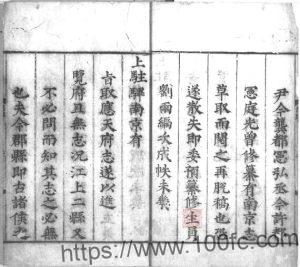 尹令龔都憲弘丞令許都
憲庭光曾修纂有南京志
草取而閱之再脫稿也
遂散失即委預纂修生員
劉雨編次成帙未幾
上駐蹕南京有
旨取應天府志遂以進
覽府且無志況江上二縣又
不必問而知其志之必無
也夫今郡縣即古諸侯
https://www.100fc.com